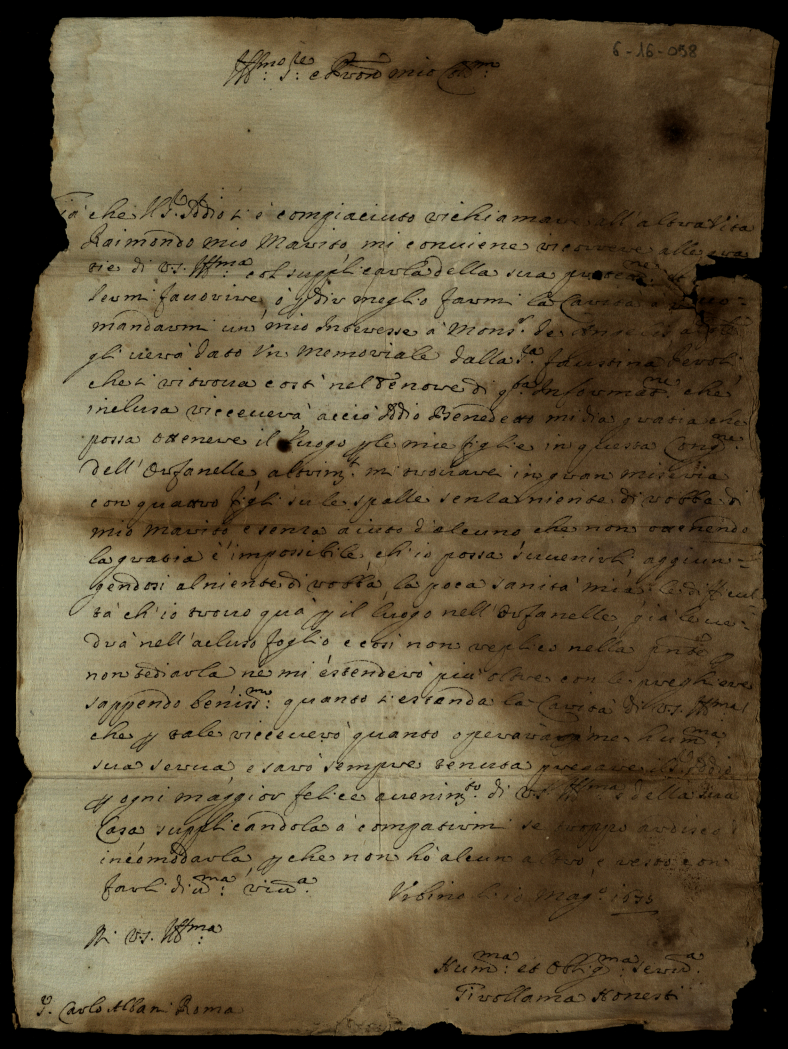 6-16-058
Ill.mo S.re e P.rone mio Col.mo
Già che N. S. Iddio si è compiaciuto richiamare all'altra Vita
Raimondo mio Marito, mi conviene ricorrere alle gra
tie di V.S. Ill.ma col supplicarla della sua
lermi favorire, ò p dir meglio farmi la Carità à
mandarmi un mio Interesse à Mons.r de
gli verà dato Un Memoriale dalla S.ra Faustina
che si ritrova costì nel nome di q.sta che
inclusa riceverà acciò Iddio Benedetto mi dia gratia che
possa ottenere il luogo p le mie figlie in questa Cong.ne
dell'Orfanelle, altrim.te mi trovarei in gran miseria
con quattro figli su le spalle senza niente di robba di
mio Marito e senza aiuto d'alcuno che non ottenendo
la gratia è impossibile ch'io possa suvenirli, aggiun-
gendosi al niente di robba, la poca sanità mia, le dificul
tà ch'io trovo quà p il luogo nell'Orfanelle, già le ve-
drà nell'acluso foglio e così non replico nella pnte p
non tediarla ne mi estenderò più oltre con le preghiere
sappendo beniss.mo quanto si estenda la Carità di V.S. Ill.ma
che p tale riceverò quanto operarà p me hum.ma
sua serva, e sarò sempre tenuta pregare il S. Iddio
p ogni maggior felice avenim.to di V.S. Ill.ma e della sua
Casa supplicandola à compatirmi se troppo ardisco
incomodarla, p che non hò alcun altro, e resto con
farli hum.ma riv.a Urbino li 10 Mag.o
Di V.S. Ill.ma
Hum.ma et Oblig.ma Serva
Honesti
S. Carlo Albani Roma